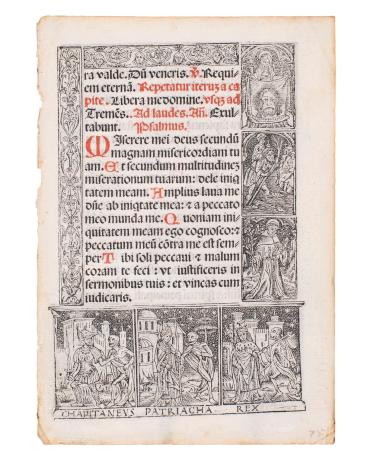 ra valde. Dū veneris. ℣. Requi
em eternā. Repetatur iteruȝ a ca
pite. Libera me domine. vsqȝ ad
Tremēs. Ad laudes. Añ. Exul
tabunt. Psalmus.
MIserere mei deus secundū
magnam misericordiam tu
am. Et secundum multitudineȝ
miserationum tuarum: dele iniq
tatem meam. Amplius laua me
dñe ab iniqtate mea: ⁊ a peccato
meo munda me. Quoniam ini
quitatem meam ego cognosco: ⁊
peccatum meū cōtra me est sem
per Tibi soli peccaui ⁊ malum
coram te feci: vt iustificeris in
sermonibus tuis: et vincas cum
iudicaris.
CHAPITANEVS PATRIACHA REX